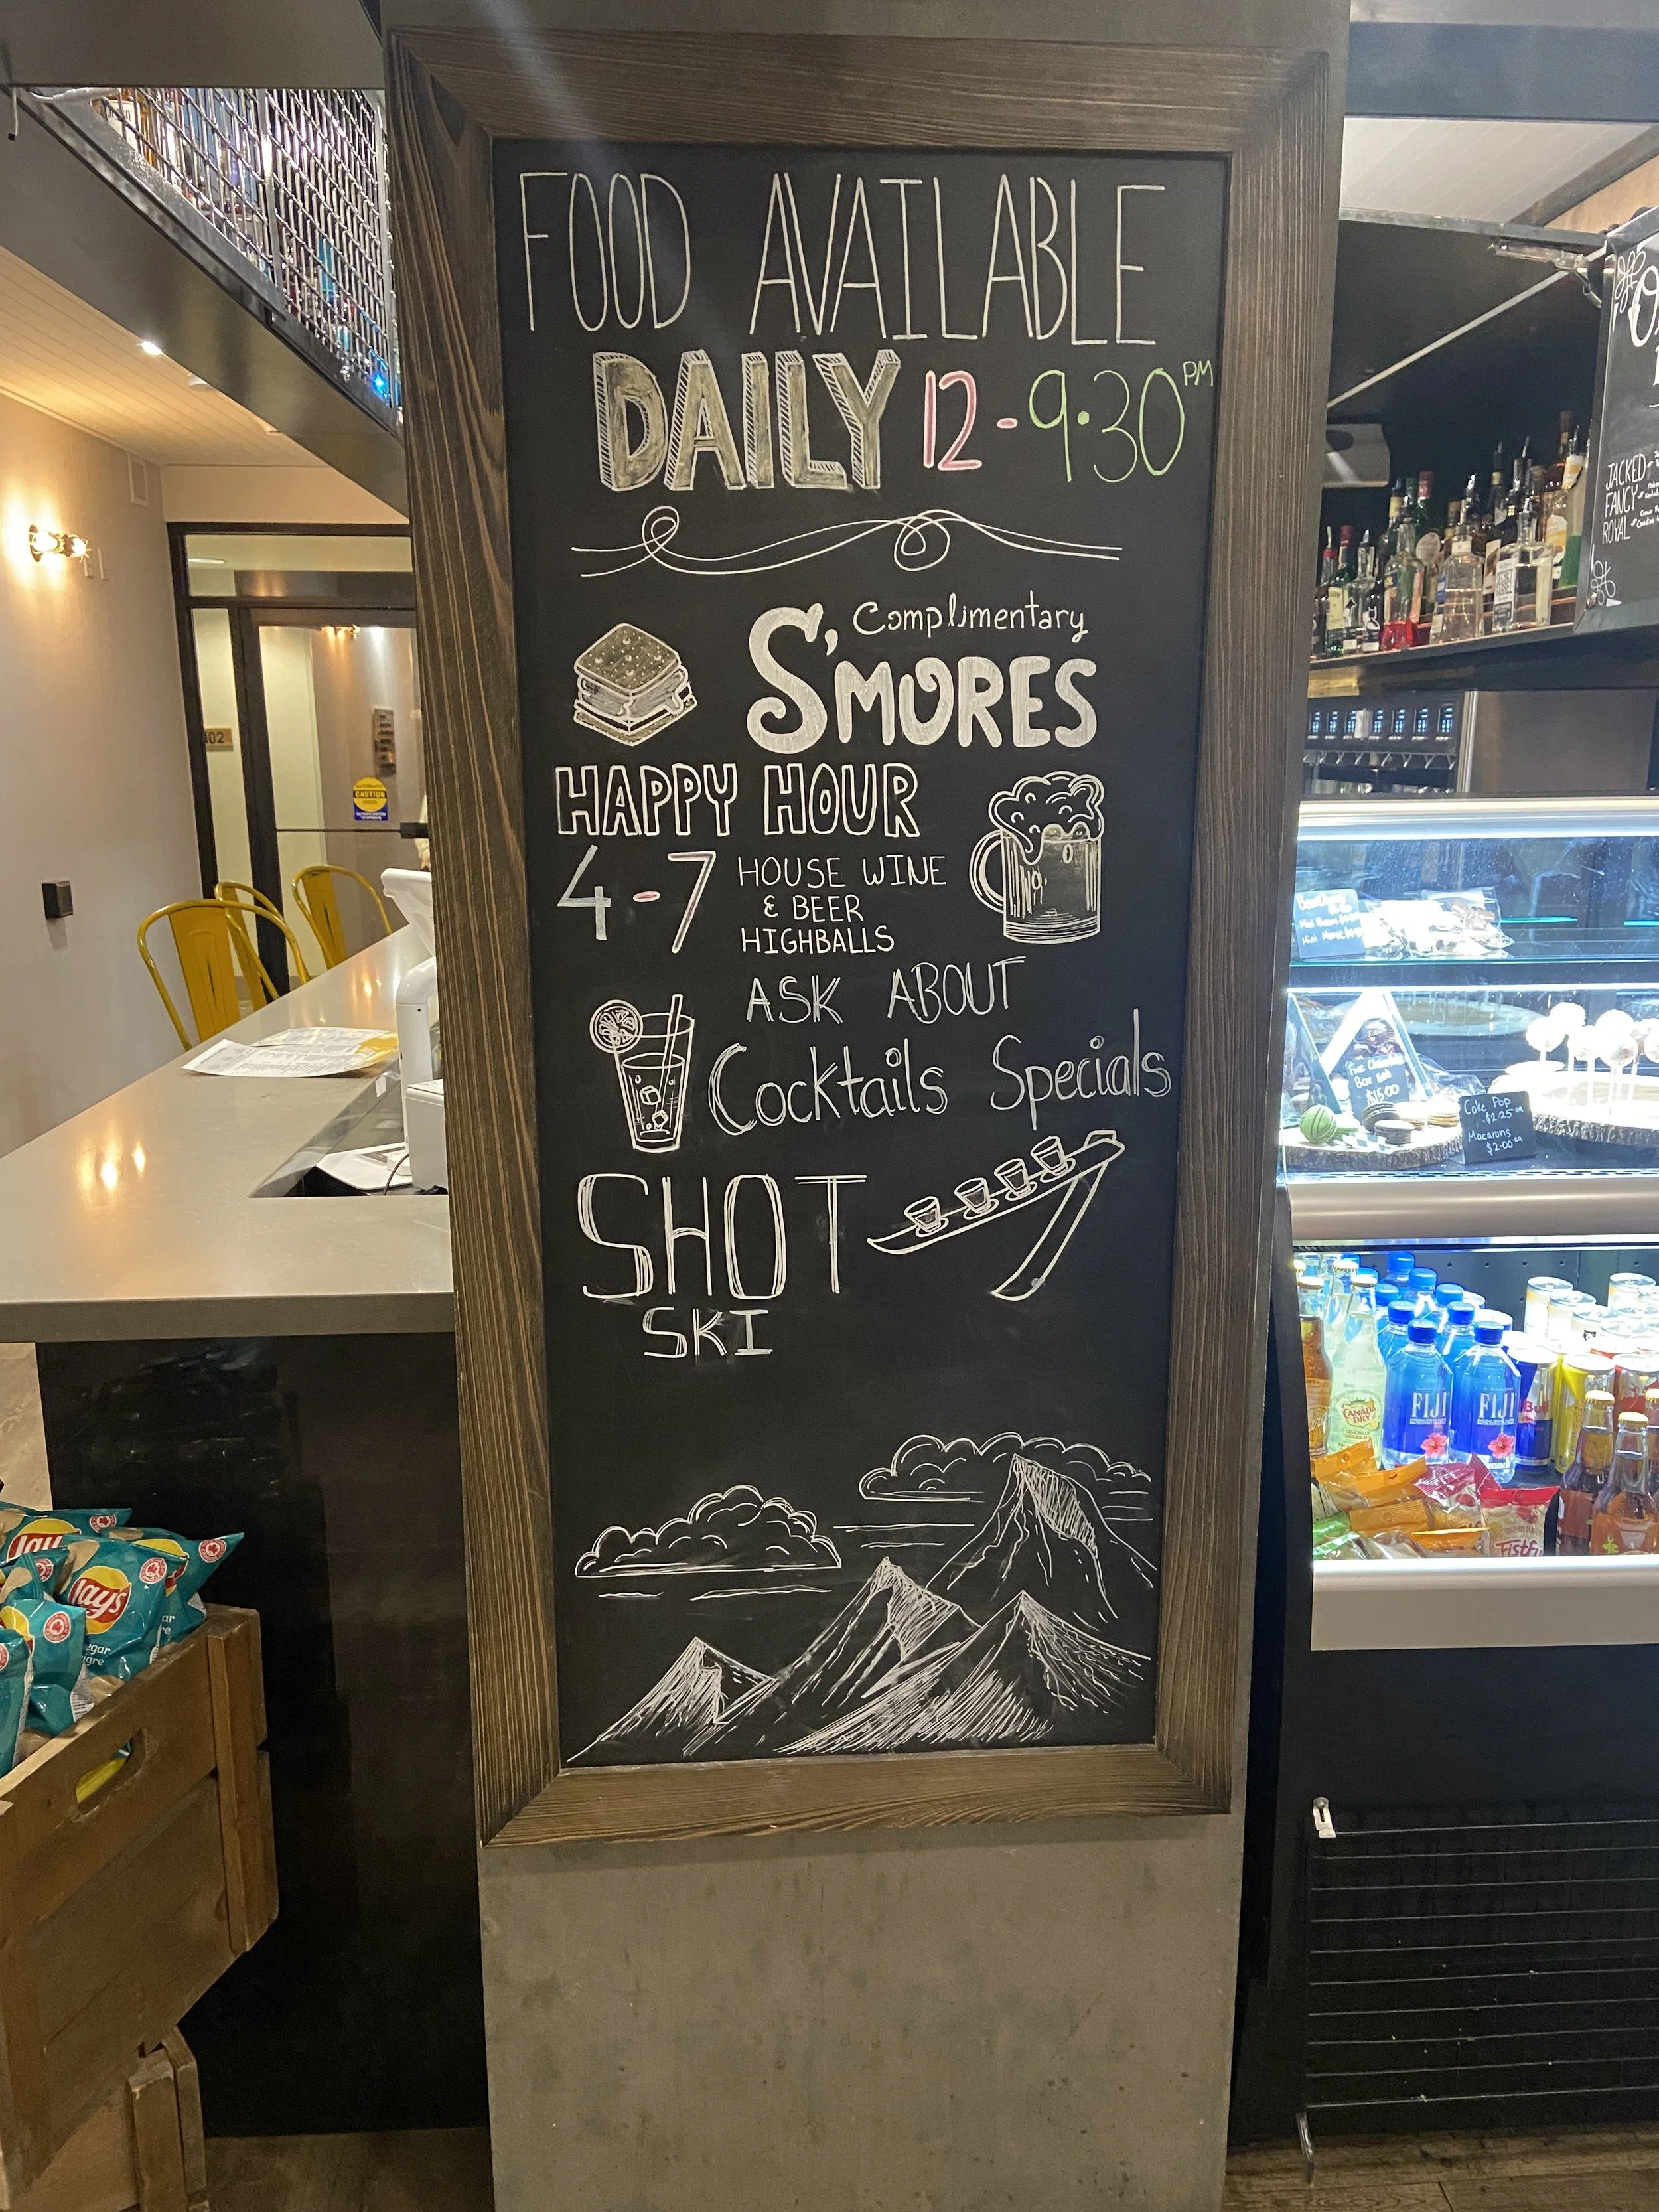 FOOD AVAILABLE
DAILY 12-9:30 PM
Complimentary
S'MORES
HAPPY HOUR
4-7 HOUSE WINE
& BEER
HIGHBALLS
ASK ABOUT
Cocktails Specials
SHOT
SKI
102
CAUTION
Lay's
Lay's
JACKED
FANCY
ROYAL
Box
$15.00
Cake Pop
$2.25 ea
Macarons
$2.00 ea
CANADA
DRY
FIJI
FIJI